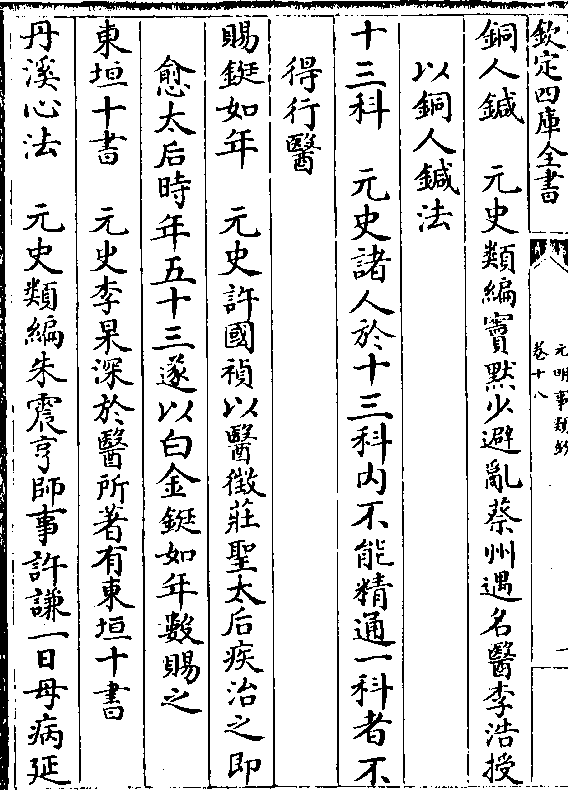 欽定四庫全書
元明事類鈔
卷十八
銅人鍼　元史類編竇默少避亂蔡州遇名醫李浩授
以銅人鍼法
十三科　元史諸人於十三科内不能精通一科者不
得行醫
賜鋌如年　元史許國禎以醫徵莊聖太后疾治之即
愈太后時年五十三遂以白金鋌如年數賜之
東垣十書　元史李杲深於醫所著有東垣十書
丹溪心法　元史類編朱震亨師事許謙一日母病延